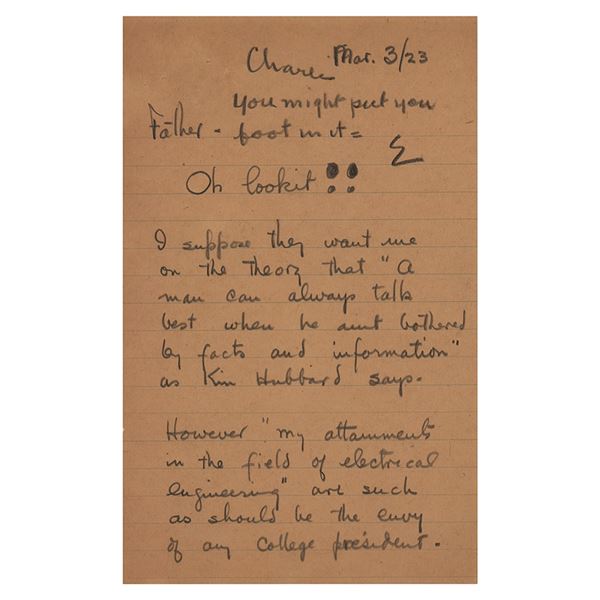 Mar. 3/23
Charles
You might put you
Father - foot in it =
E
Oh lookit !!
I suppose they want me
on the theory that "A
man can always talk
best when he aint bothered
by facts and information"
as Kin Hubbard says.
However "my attainments
in the field of electrical
engineering" are such
as should be the envy
of any college president.